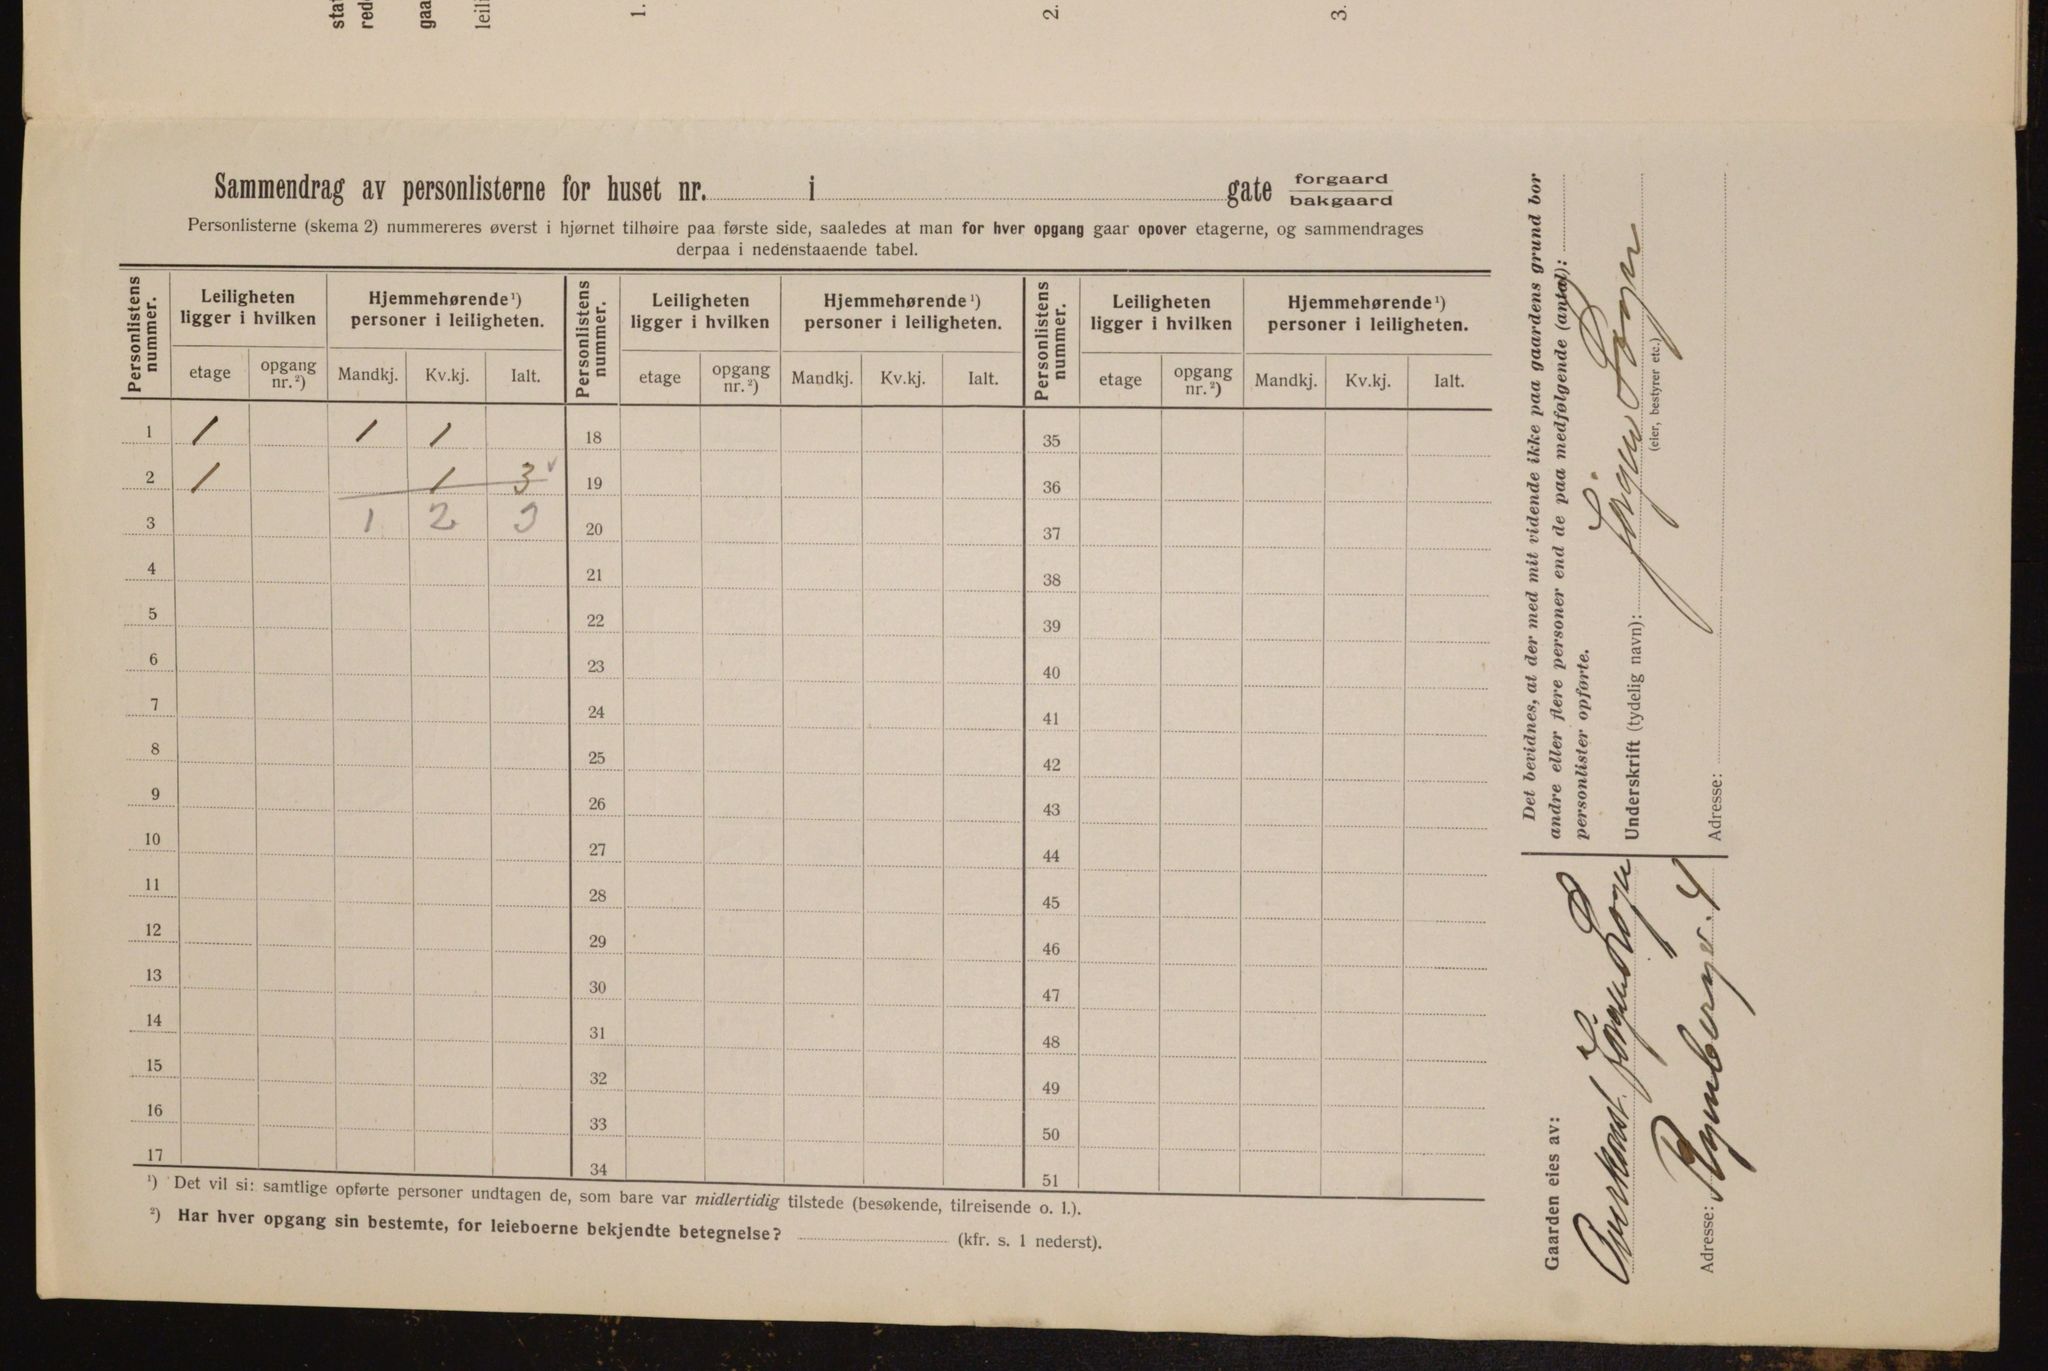 stat
red
gaa
leili
1.
2.
3.
Sammendrag av personlisterne for huset nr. i gate forgaard
bakgaard
Personlisterne (skema 2) nummereres øverst i hjørnet tilhøire paa første side, saaledes at man for hver opgang gaar opover etagerne, og sammendrages
derpaa i nedenstaaende tabel.
Personlistens nummer. Leiligheten ligger i hvilken Hjemmehørende ¹) personer i leiligheten. Personlistens nummer. Leiligheten ligger i hvilken Hjemmehørende ¹) personer i leiligheten. Personlistens nummer. Leiligheten ligger i hvilken Hjemmehørende ¹) personer i leiligheten.
etage opgang nr. ²) Mandkj. Kv.kj. Ialt. etage opgang nr. ²) Mandkj. Kv.kj. Ialt. etage opgang nr. ²) Mandkj. Kv.kj. Ialt.
1 1 1 1 18 35
2 1 1 3 19 36
3 1 2 3 20 37
4 21 38
5 22 39
6 23 40
7 24 41
8 25 42
9 26 43
10 27 44
11 28 45
12 29 46
13 30 47
14 31 48
15 32 49
16 33 50
17 34 51
¹) Det vil si: samtlige opførte personer undtagen de, som bare var midlertidig tilstede (besøkende, tilreisende o. l.).
²) Har hver opgang sin bestemte, for leieboerne bekjendte betegnelse? (kfr. s. 1 nederst).
Det bevidnes, at der med mit vidende ikke paa gaardens grund bor
andre eller flere personer end de paa medfølgende (antal):
personlister opførte.
Underskrift (tydelig navn):
(eier, bestyrer etc.)
Adresse:
Gaarden eies av:
Adresse: 4